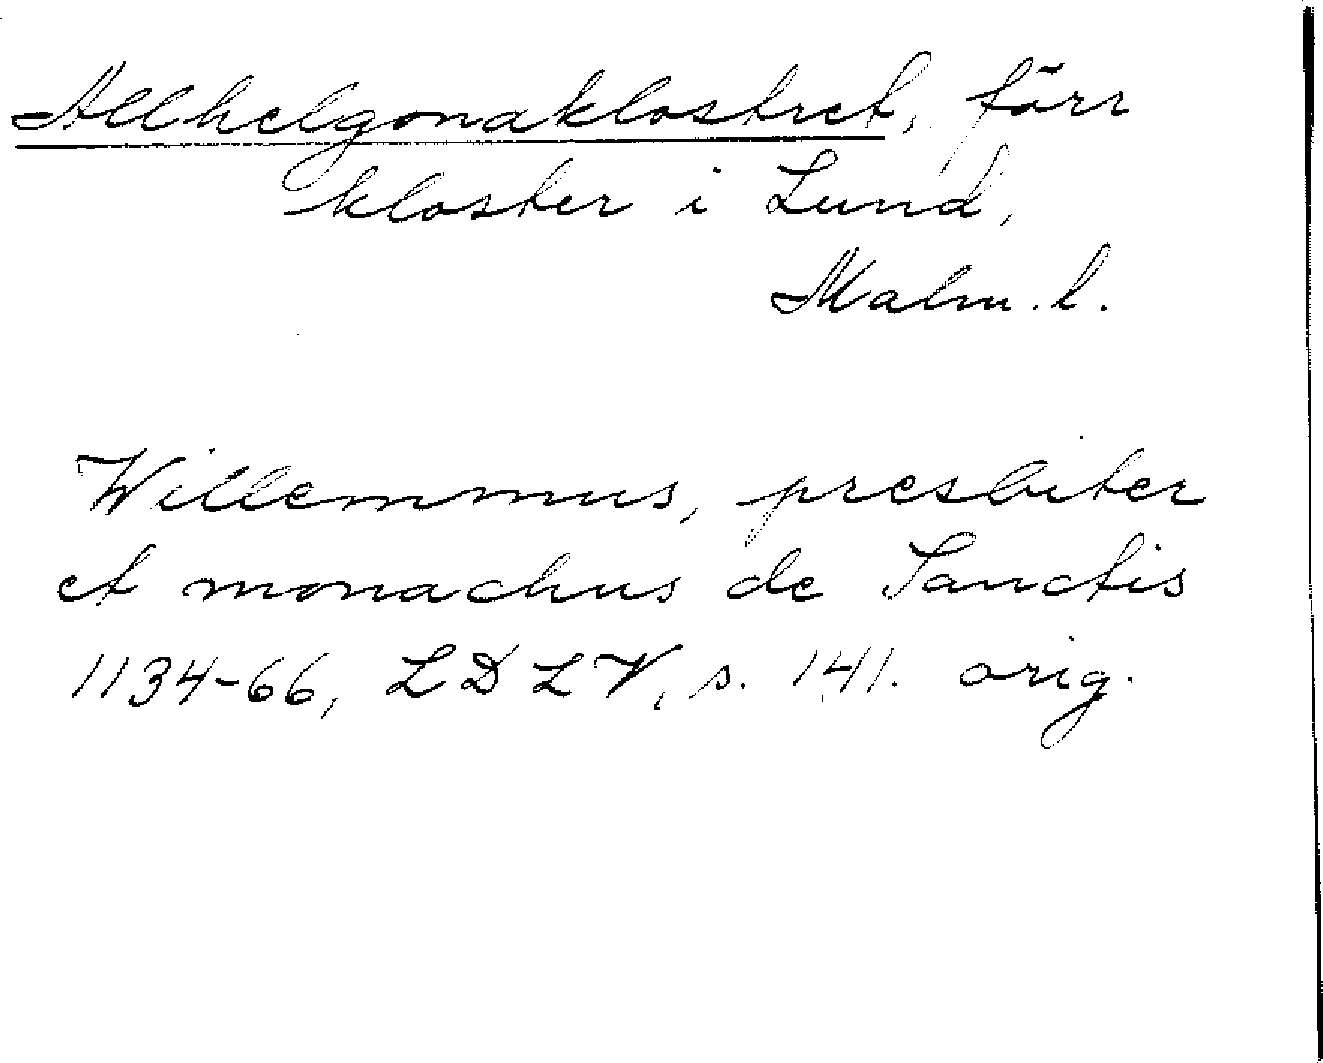 Allhelgonaklostret, förr
kloster i Lund,
Malm. l.
Willemmus, presbiter
et monachus de Sanctis
1134-66, LDLV, s. 141. orig.